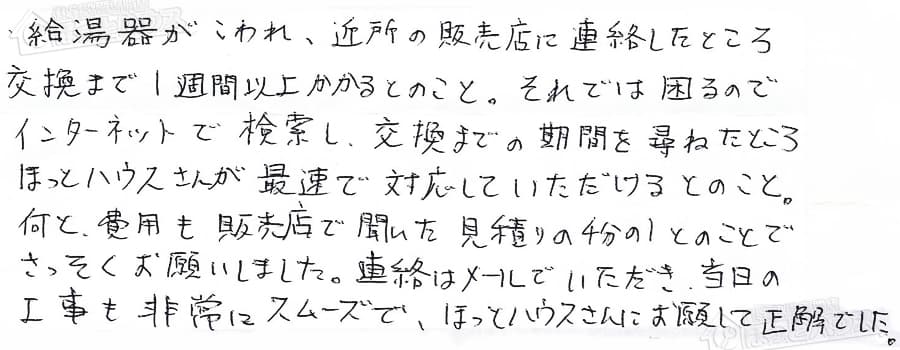 給湯器がこわれ、近所の販売店に連絡したところ
交換まで1週間以上かかるとのこと。それでは困るので
インターネットで検索し、交換までの期間を尋ねたところ
ほっとハウスさんが最速で対応していただけるとのこと。
何と、費用も販売店で聞いた見積りの4分の1とのことで
さっそくお願いしました。連絡はメールでいただき、当日の
工事も非常にスムーズで、ほっとハウスさんにお願して正解でした。